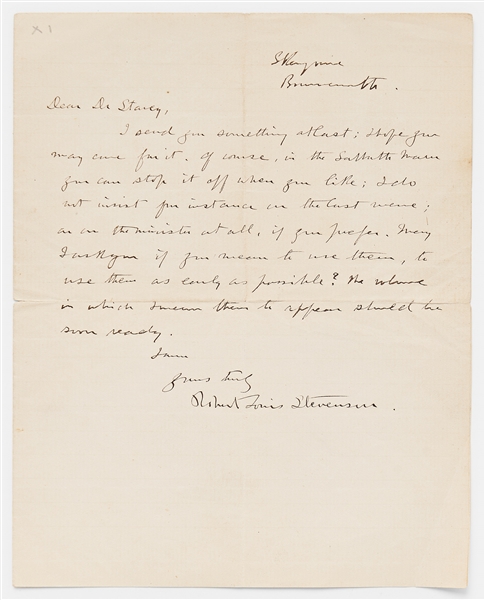 X1
Skerryvore
Bournemouth.
Dear Dr Stacey,
I send you something at last; I hope you
may care for it. Of course, in the Sabbath Morn
you can stop it off when you like; I do
not insist for instance on the last verse;
or on the minister at all, if you prefer. May
I ask you if you mean to use them, to
use them as early as possible? The volume
in which I mean them to appear should be
soon ready.
I am
yours truly
Robert Louis Stevenson.